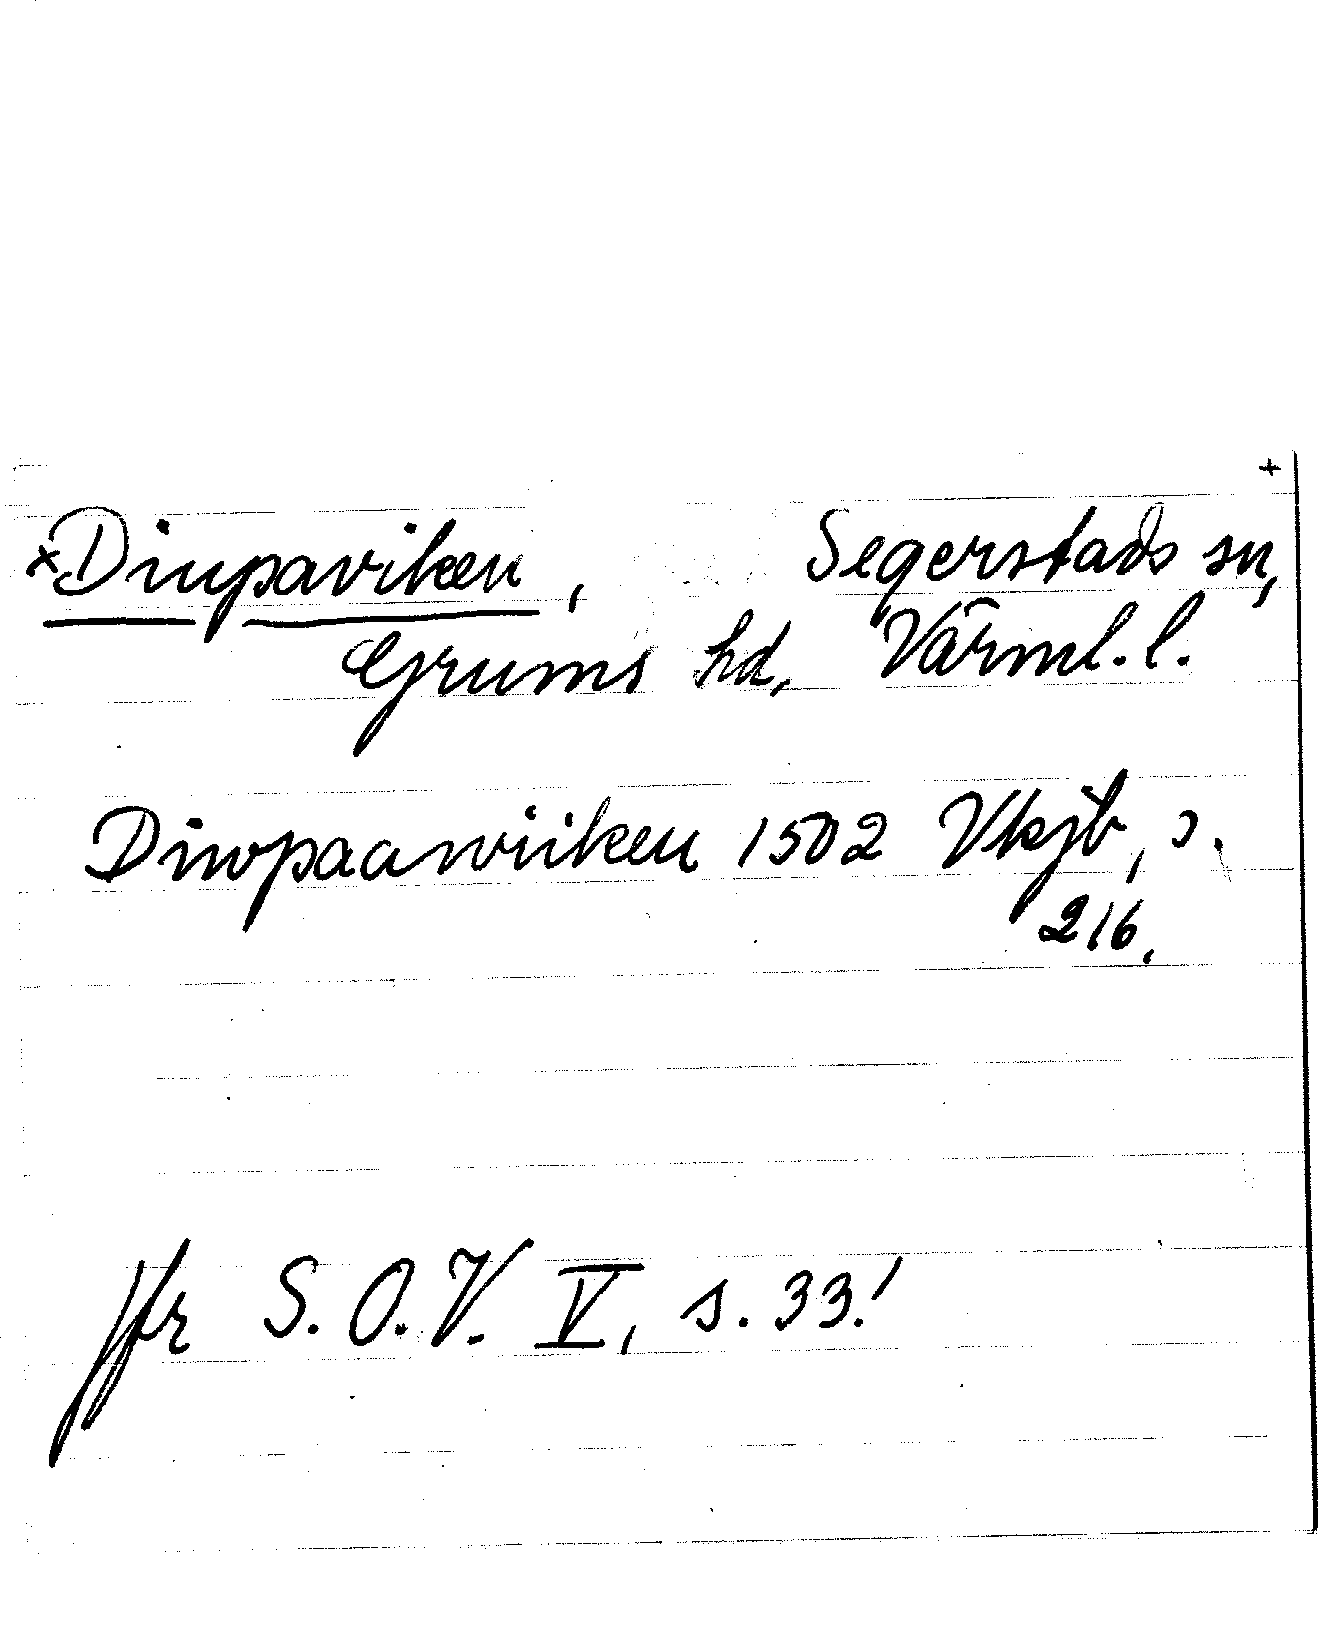 +
×Diupaviken, Segerstads sn,
Grums hd, Värml. l.
Diwpaawiiken 1502 Vkjb, s.
216.
Jfr S.O.V. V, s. 33!